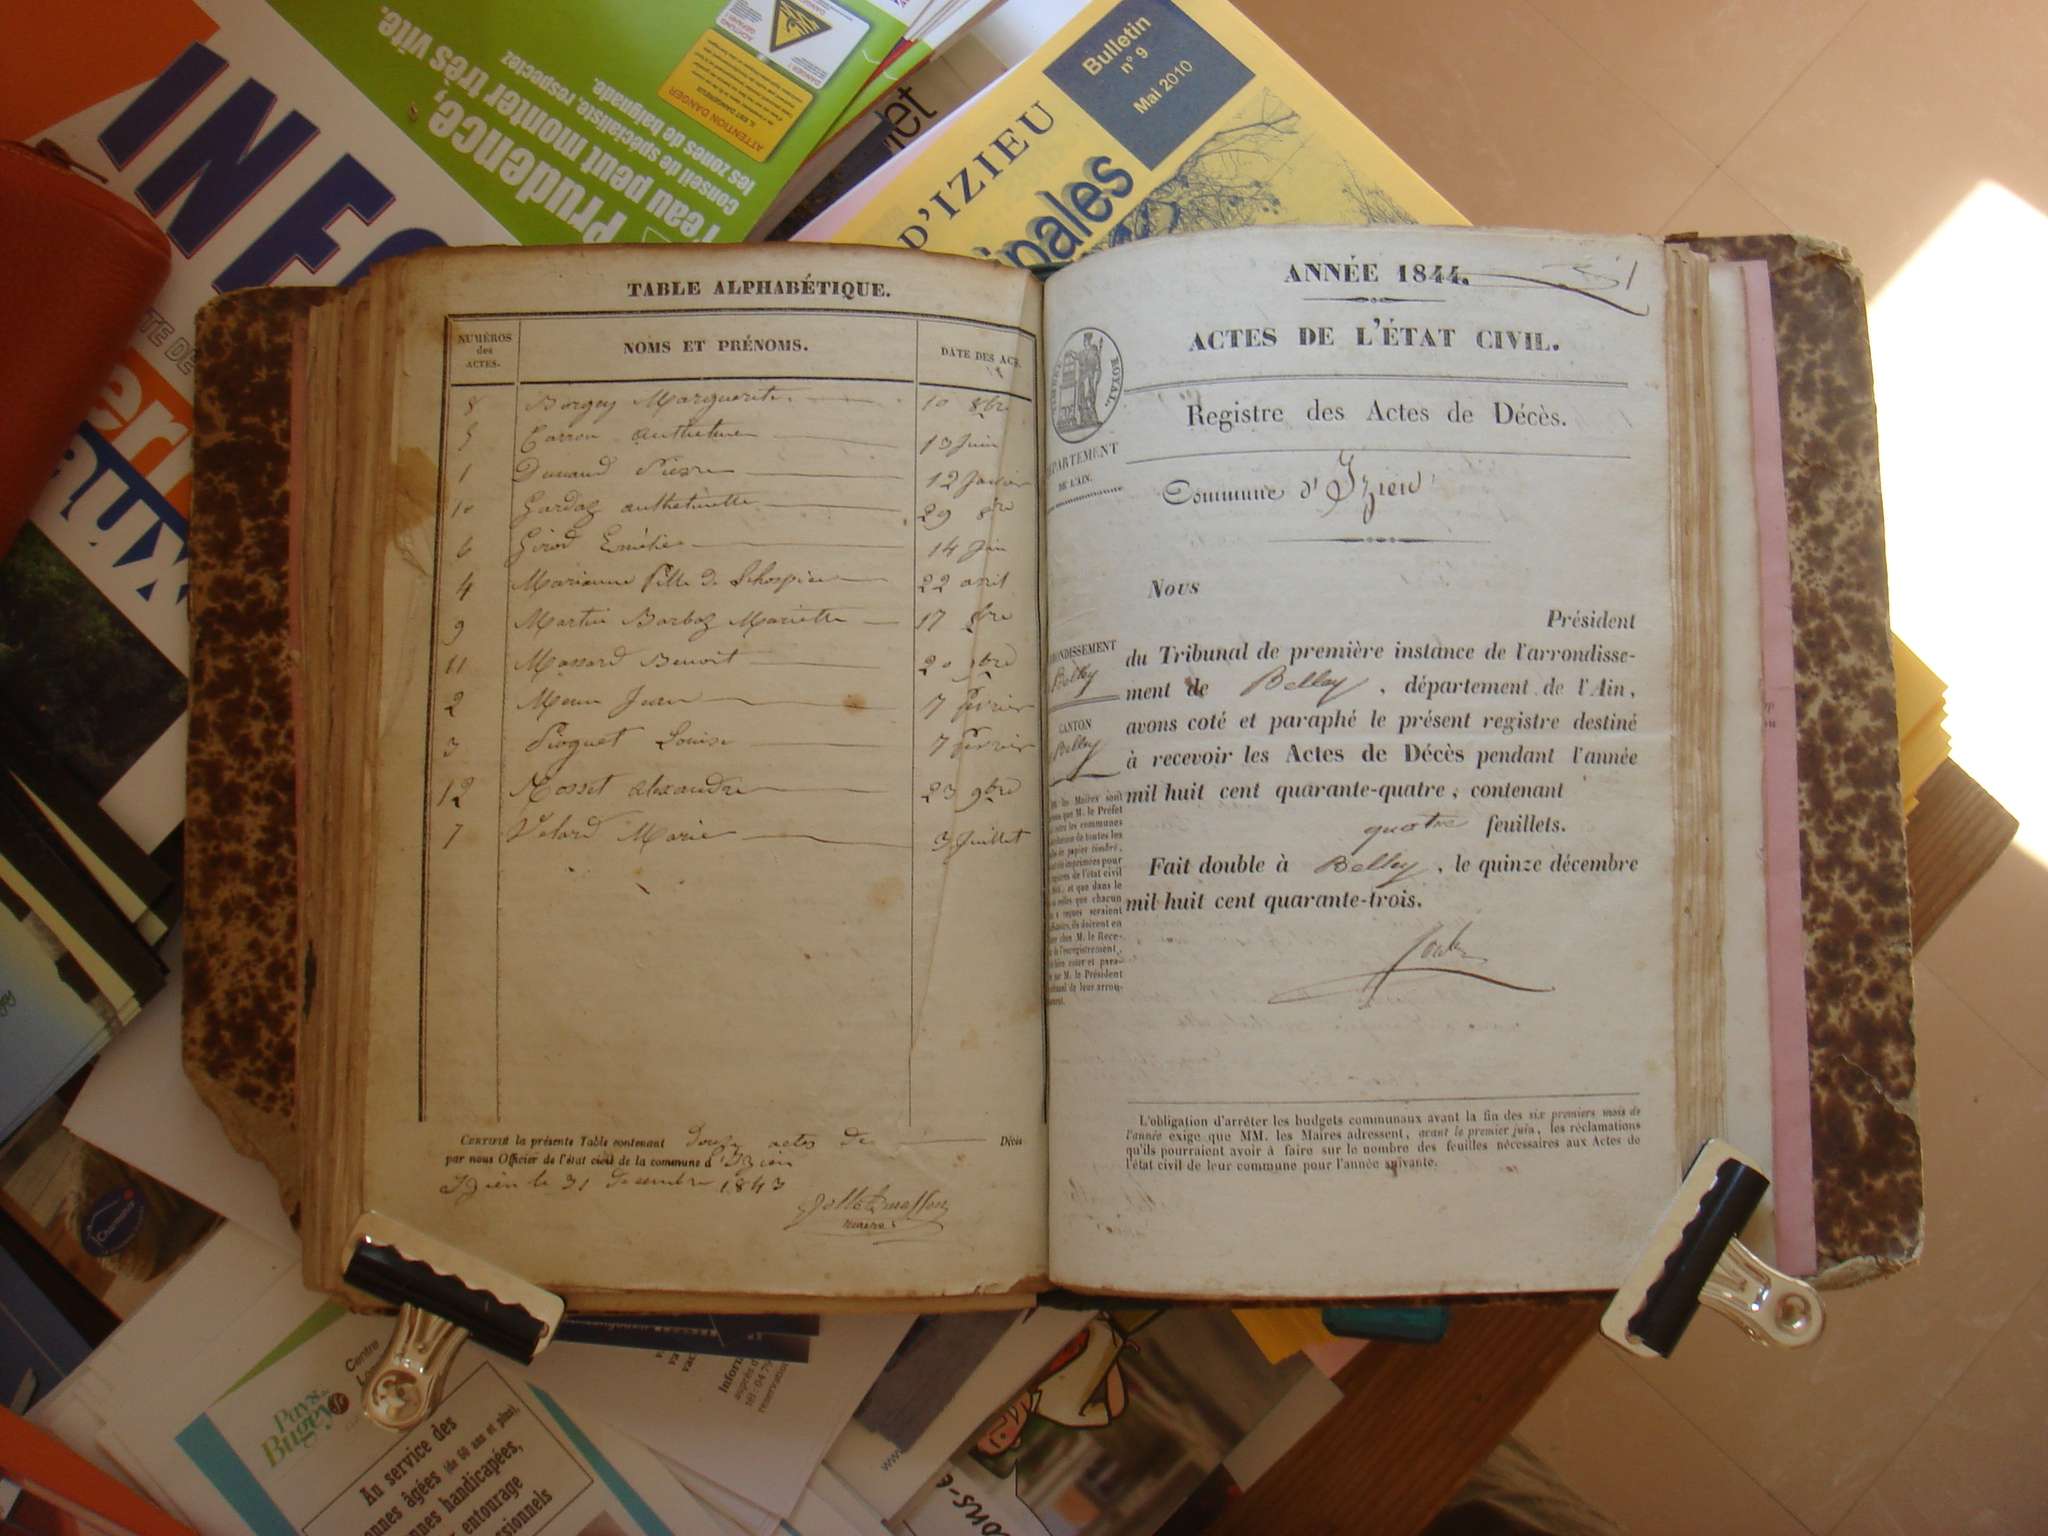 INFO
Prudence,
l'eau peut monter très vite.
conseil de spécialiste, respectez
les zones de baignade.
ATTENTION DANGER
Bulletin
n° 9
Mai 2010
D'IZIEU
ipales
TABLE ALPHABÉTIQUE.
NUMÉROS
des
ACTES.
NOMS ET PRÉNOMS.
DATE DES AC
8 Borgey Marguerite 10 8bre
5 Carron anthelmee 13 Juin
1 Dunand Pierre 12 Janvier
10 Gardaz anthelmette 29 8bre
6 Girod Emélie 14 Juin
4 Marianne fille de L'hospice 22 avril
9 Martin Barbaz Mariette 17 8bre
11 Massard Benoit 20 9bre
2 Jean 7 fevrier
3 Pioguet Louise 7 fevrier
12 Rosset alexandre 23 9bre
7 Velard Marie 9 Juillet
CERTIFIÉ la présente Table contenant Douze actes de Décès
par nous Officier de l'état civil de la commune d'Izieu
Izieu le 31 Decembre 1843
maire
ANNÉE 1844.
ACTES DE L'ÉTAT CIVIL.
TIMBRE ROYAL
Registre des Actes de Décès.
PARTEMENT
DE L'AIN.
Commune d'Izieu
Nous
Président
du Tribunal de première instance de l'arrondisse-
ment de Belley, département de l'Ain,
avons coté et paraphé le présent registre destiné
à recevoir les Actes de Décès pendant l'année
mil huit cent quarante-quatre, contenant
quatre feuillets.
Fait double à Belley, le quinze décembre
mil huit cent quarante-trois.
ONDISSEMENT
Belley
CANTON
Belley
les Maires sont
que M. le Préfet
entre les communes
de toutes les
de papier timbré,
imprimées pour
de l'état civil
, et que dans le
celles que chacun
reçues seraient
, ils doivent en
chez M. le Rece-
de l'enregistrement,
faire coter et para-
M. le Président
tribunal de leur arron-
L'obligation d'arrêter les budgets communaux avant la fin des six premiers mois de
l'année exige que MM. les Maires adressent, avant le premier juin, les réclamations
qu'ils pourraient avoir à faire sur le nombre des feuilles nécessaires aux Actes de
l'état civil de leur commune pour l'année suivante.
Centre
Pays
Bugey
Au service des
onnes âgées (de 60 ans et plus),
nnes handicapées,
entourage
ssionnels